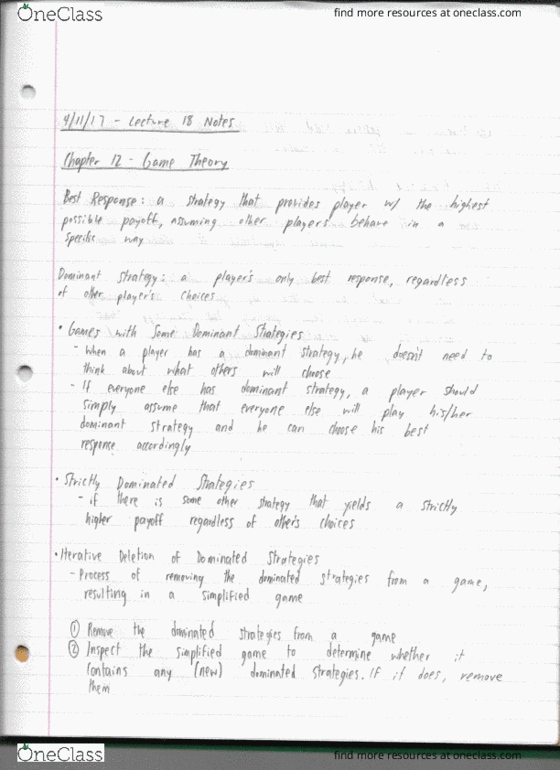 OneClass
find more resources at oneclass.com
4/11/17 - Lecture 18 Notes
Chapter 12 - Game Theory
Best Response: a strategy that provides player w/ the highest
possible payoff, assuming other players behave in a
specific way
Dominant Strategy: a player's only best response, regardless
of other player's choices
• Games with Some Dominant Strategies
- When a player has a dominant strategy, he doesn't need to
think about what others will choose
- If everyone else has dominant strategy, a player should
simply assume that everyone else will play his/her
dominant strategy and he can choose his best
response accordingly
• Strictly Dominated Strategies
- if there is some other strategy that yields a strictly
higher payoff regardless of other's choices
• Iterative Deletion of Dominated Strategies
- Process of removing the dominated strategies from a game,
resulting in a simplified game
① Remove the dominated strategies from a game
② Inspect the simplified game to determine whether it
contains any (new) dominated strategies. If it does, remove
them
OneClass
find more resources at oneclass.com